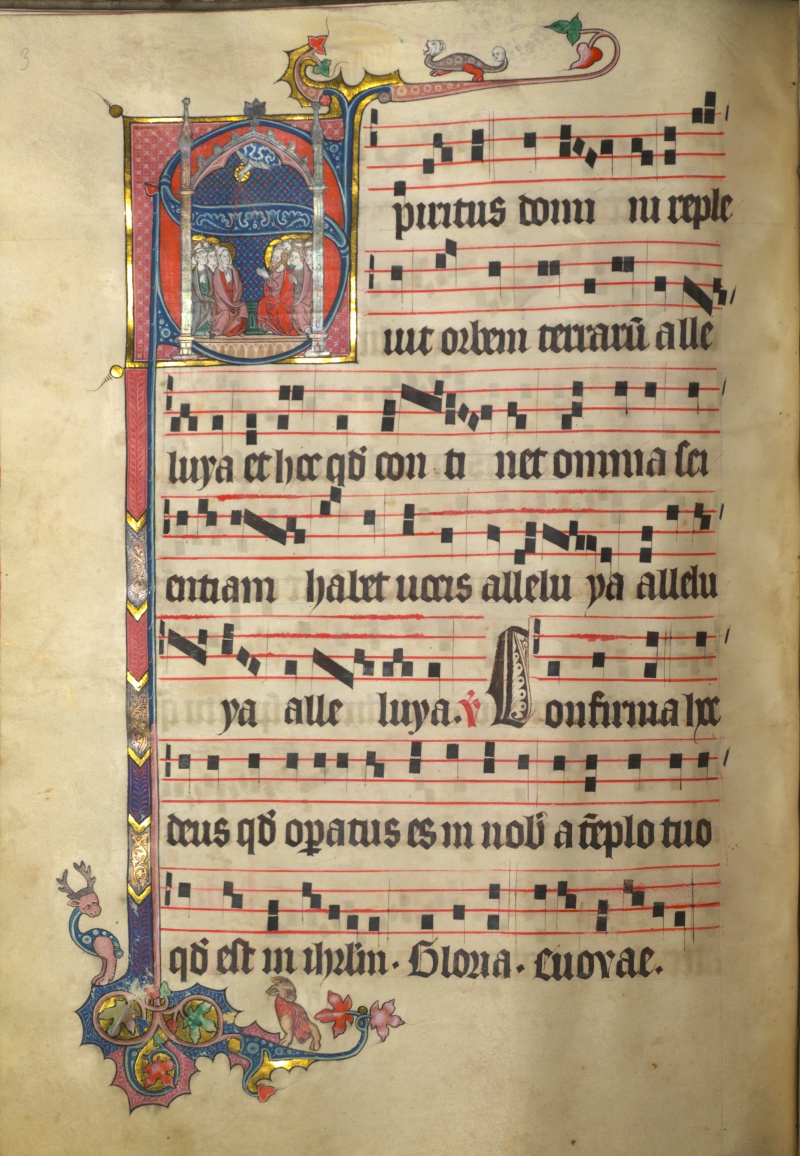 3
Spiritus domi ni reple
uit orbem terrarū alle
luya et hoc qd̄ con ti net omnia sci
entiam habet uocis allelu ya allelu
ya alle luya. v̄ Confirma hoc
deus qd̄ oꝑatus es in nob̄ a tēplo tuo
qd̄ est in ihrl̄m · Gloria · euovae.